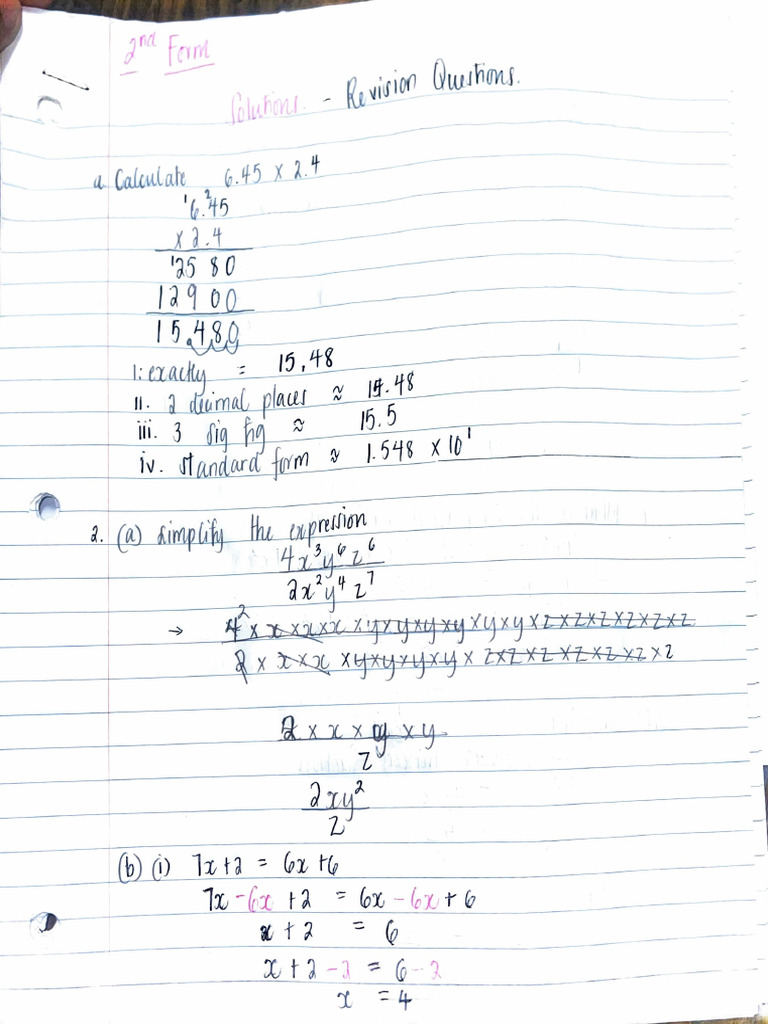 2nd Form
Solutions. - Revision Questions.
a Calculate 6.45 x 2.4
6.45
x 2.4
2580
12900
15.480
i. exactly = 15.48
ii. 2 decimal places ≈ 15.48
iii. 3 sig fig ≈ 15.5
iv. standard form ≈ 1.548 x 10¹
2. (a) Simplify the expression
4x³y⁶z⁶
2x²y⁴z⁷
→ 4² x x x x x x x y x y x y x y x y x y x z x z x z x z x z x z
2 x x x x x y x y x y x y x z x z x z x z x z x z x z
2 x x x y x y
z
2xy²
z
(b) (i) 7x+2 = 6x+6
7x-6x+2 = 6x-6x+6
x+2 = 6
x+2-2 = 6-2
x = 4